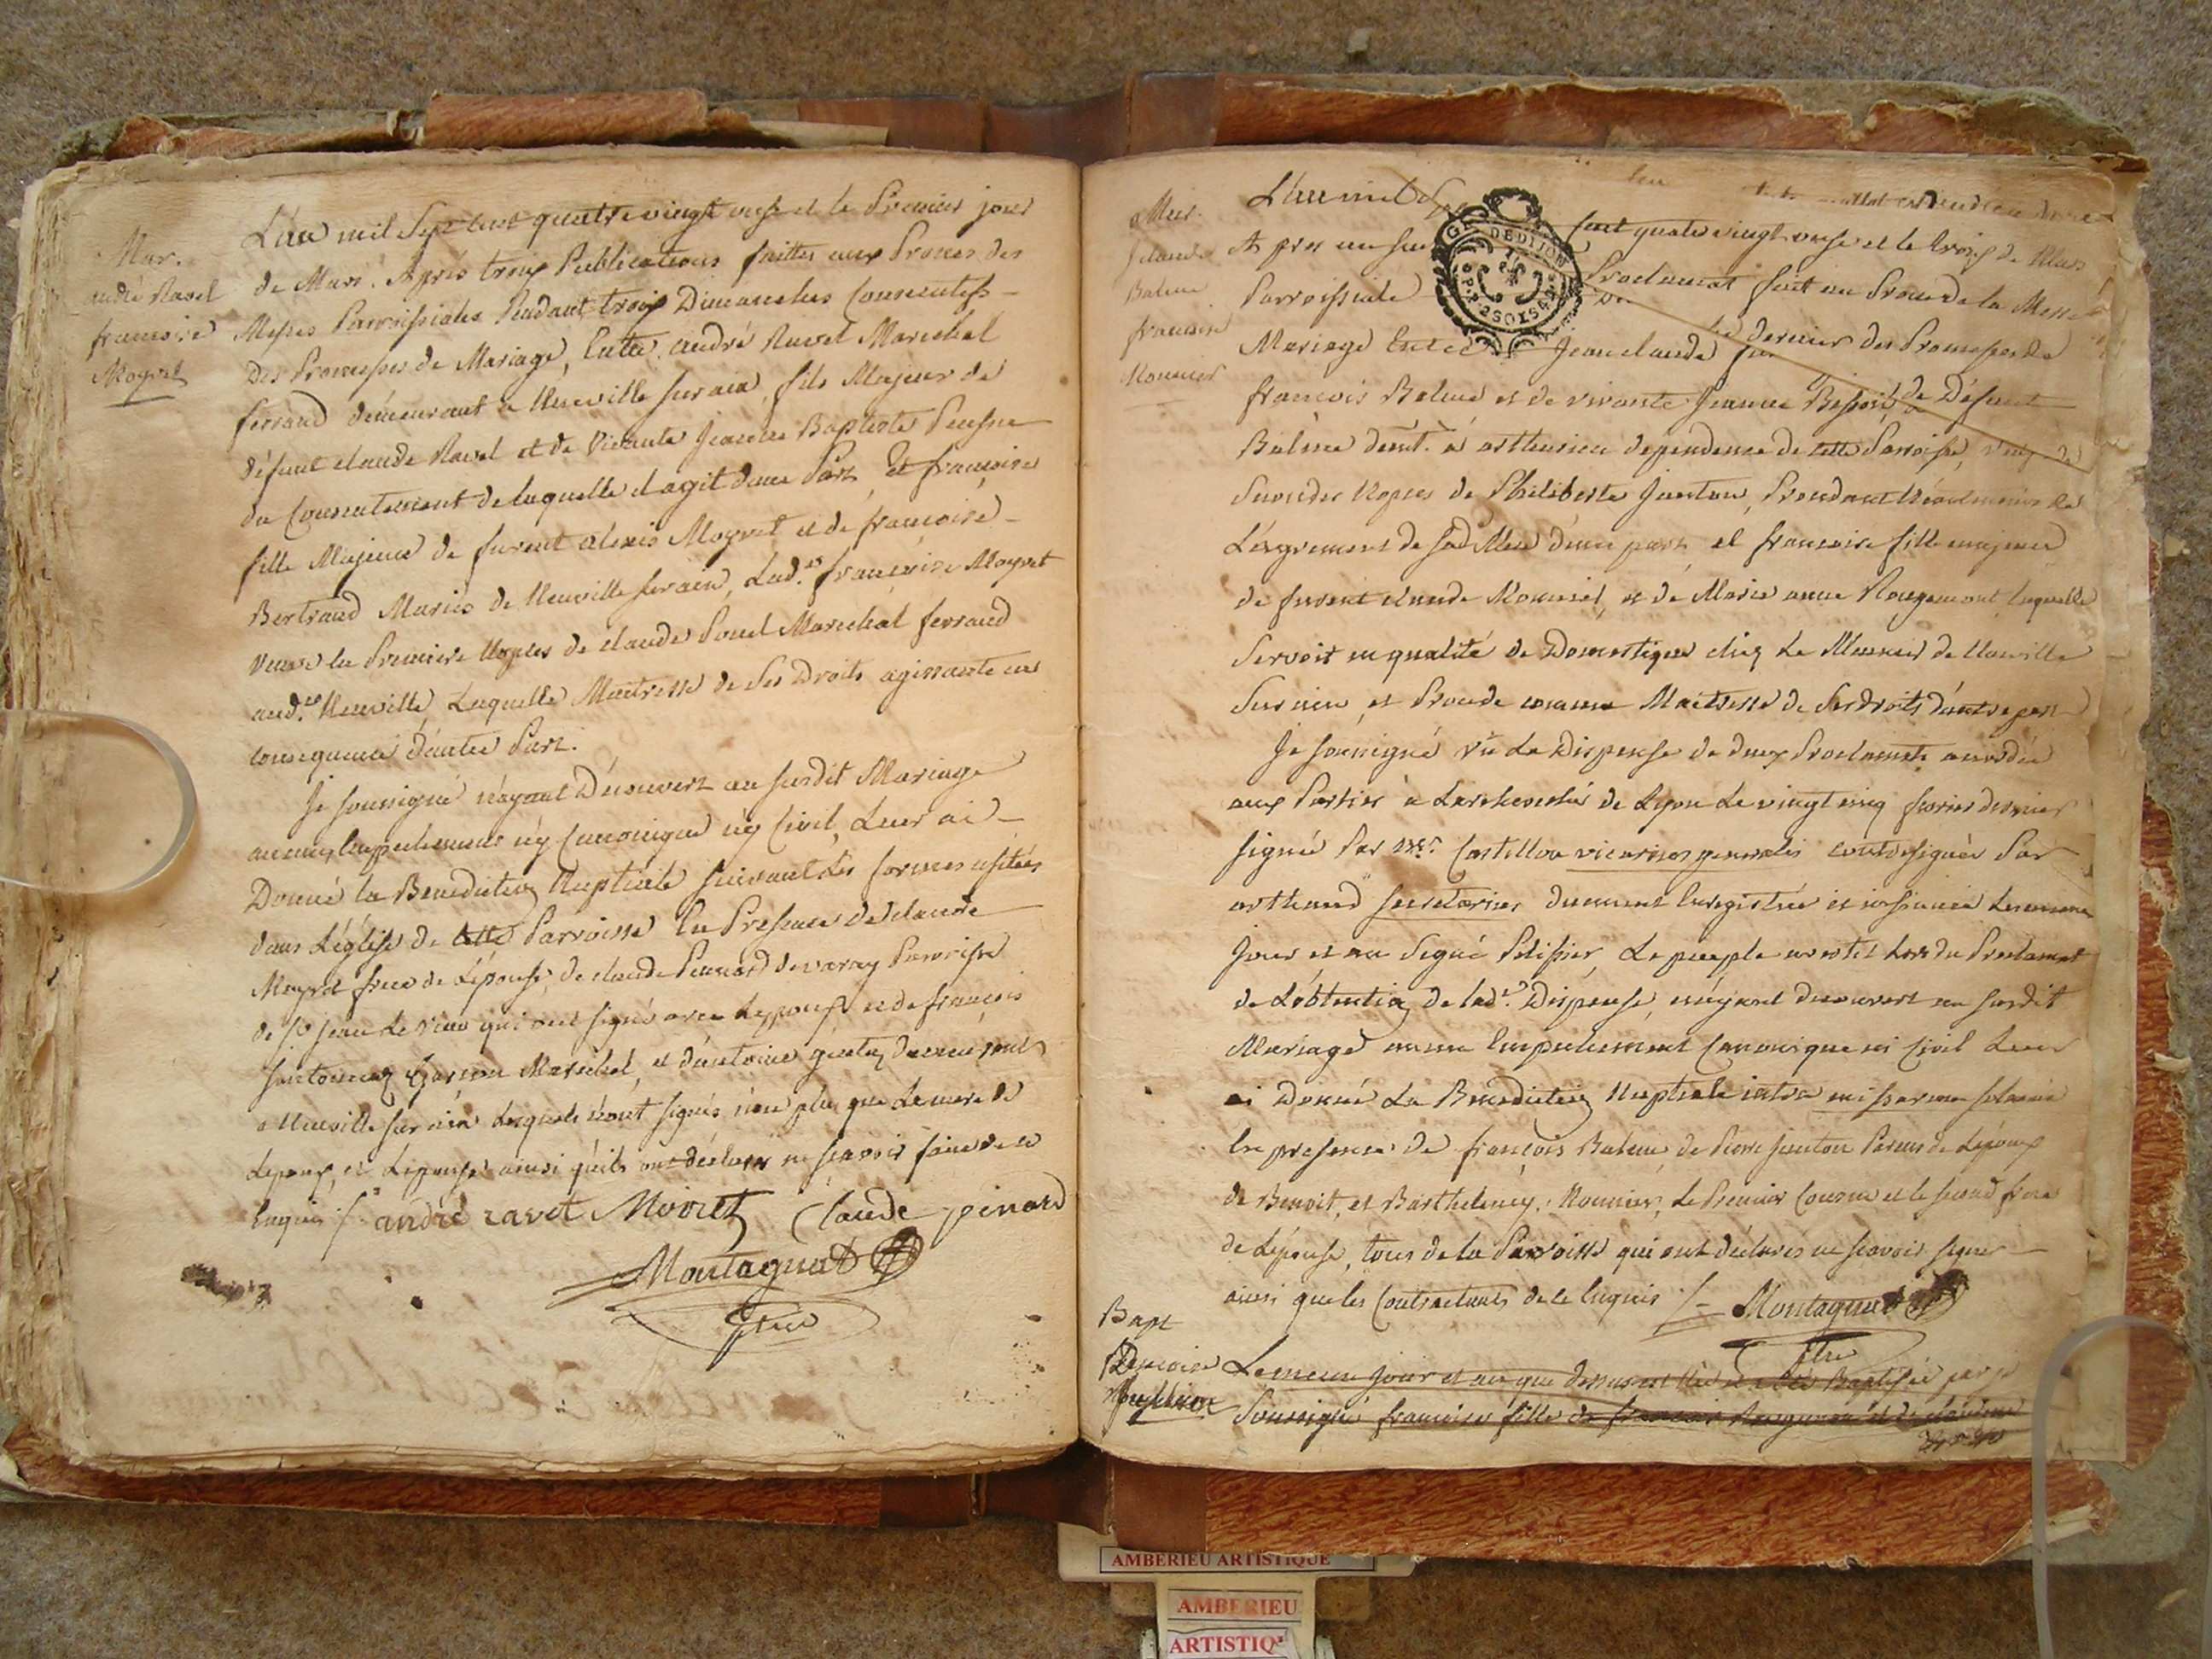 Mar.
andré Ravet
francoise
Moyret
L'an mil Sept cent quatre vingt onze et le Premier jour
de Mars. Après trois Publications faittes aux Prones des
Messes Parroissiales Pendant trois Dimanches Consecutifs
Des Promesses de Mariage, Entre andré Ravet Marechal
ferrand demeurant a Neuville sur ain, fils Majeur de
défunt claude Ravet et de Vivante Jeanne Baptiste
du Consentement de laquelle il agit d'une Part, Et françoise
fille Majeure de furent alexis Moyret et de francoise
Bertrand Mariés de Neuville sur ain, Lad.te françoise Moyret
veuve en Premiere Nopces de claude Marechal ferrand
aud. Neuville Laquelle Maitresse de Ses Droits agissante en
consequence d'autre Part.
Je soussigné n'ayant Découvert au susdit Mariage
aucun Empechement ny Canonique ny Civil, Leur ai
Donné la Benediction Nuptiale suivant Les formes usitées
dans L'église de cette Parroisse En Presence de claude
Moyret frere de L'épouse, de claude Pennard de varay Parroisse
de St Jean Le vieux qui ont signé avec L'epoux et de françois
garson Marechal, et d'antoine demeurant
a Neuville sur ain Lesquels n'ont signés non plus que La mere de
L'epoux, et L'epouse ainsi qu'ils ont déclarés ne sçavoir faire de ce
Enquis ./. andré ravet Moiret Claude pinard
Montagnat
Ptre
Mar.
Claude
Balme
francoise
Mounier
L'an mil Sept cent quatre vingt onze et le trois de Mars
Apres un seul Proclamat fait au Prone de la Messe
Parroissiale dernier des Promesses de
Mariage Entre Jean claude fils de Défunt
francois Balme et de vivante Jeanne
Balme demt. à dependence de cette Parroisse, veuf de
Secondes Nopces de Philiberte Janton, Procedant
L'agrement de sad. Mere d'une part et francoise fille majeure
de furent claude Mounier, et de Marie anne Rougemont laquelle
Servoit en qualité de Domestique chez Le Meunier de Neuville
Sur ain, et Procede comme Maitresse de Ses droits d'autre part
Je soussigné vû La Dispense de deux Proclamats accordée
aux Parties à L'archeveché de Lyon Le vingt cinq fevrier dernier
signée Par Mr. Castillon vicarius generalis contresignée Par
secretarius duement Enregistrée et insinuée Le meme
jour et an Signé Pelissier, Le peuple averti Lors du Proclamat
de L'obtention de lad.te Dispense, n'ayant decouvert au susdit
Mariage aucun Empechement Canonique ni Civil Leur
ai Donné La Benediction Nuptiale intra missarum solemnia
En presence de françois Balme, de Pierre Janton Parens de L'époux
de Benoit, et Barthelemy Mounier, Le Premier Cousin et le second frere
de L'épouse, tous de la Parroisse qui ont déclarés ne scavoir signer
ainsi que les Contractants de ce Enquis ./. Montagnat
Ptre
Bapt
francoise
Le meme jour et an que dessus est née et a été Baptisée par je
Soussigné francoise fille de francois et de claudine
GEN. DE DIJON
AMBERIEU ARTISTIQUE
AMBERIEU
ARTISTIQ